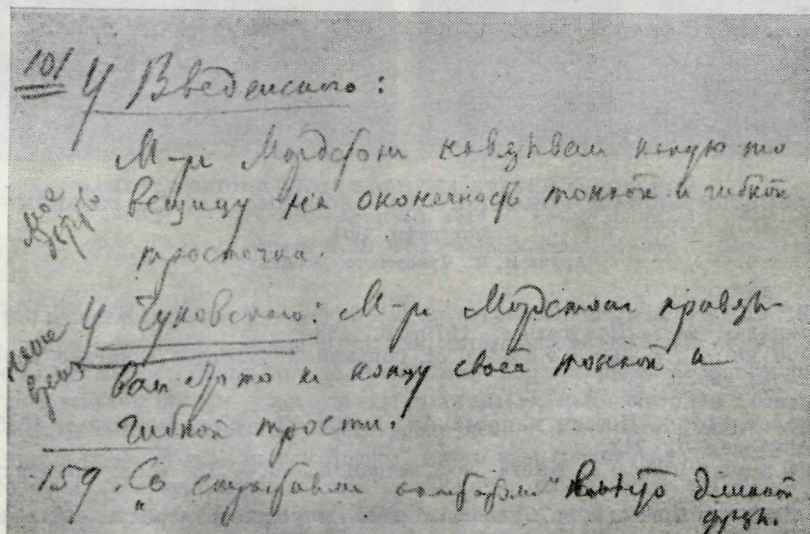 101 У Введенского:
М-р Мордстон навязывал какую то
вещицу на оконечность тонкой и гибкой
тросточки.
У Чуковского: М-р Мордстон привязы-
вал что то к концу своей тонкой и
гибкой трости.
наше время
159. Со